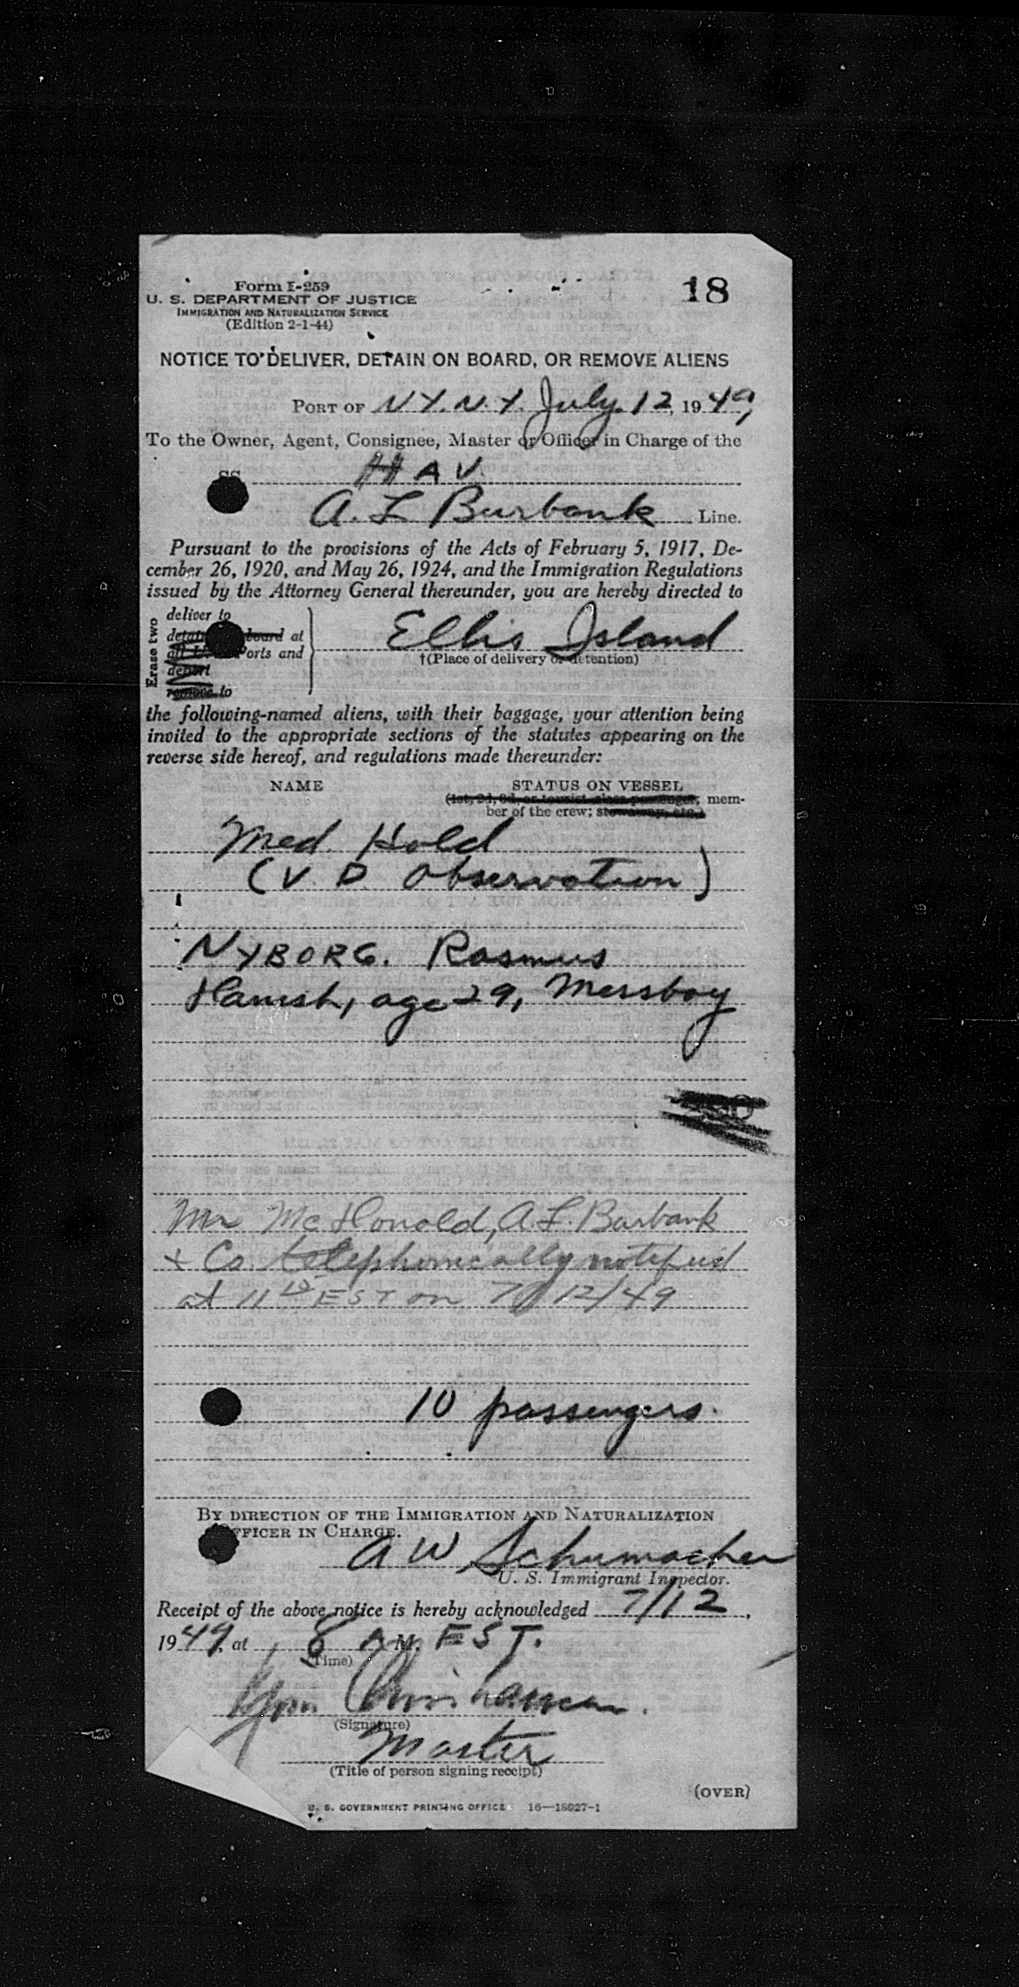 18
Form I-259
U. S. DEPARTMENT OF JUSTICE
IMMIGRATION AND NATURALIZATION SERVICE
(Edition 2-1-44)
NOTICE TO DELIVER, DETAIN ON BOARD, OR REMOVE ALIENS
PORT OF N.Y. N.Y. July 12, 1949,
To the Owner, Agent, Consignee, Master or Officer in Charge of the
SS HAV
A. L Burbank Line.
Pursuant to the provisions of the Acts of February 5, 1917, De-
cember 26, 1920, and May 26, 1924, and the Immigration Regulations
issued by the Attorney General thereunder, you are hereby directed to
Erase two
deliver to
board at
Ports and
deport
remove to
Ellis Island
†(Place of delivery or detention)
the following-named aliens, with their baggage, your attention being
invited to the appropriate sections of the statutes appearing on the
reverse side hereof, and regulations made thereunder:
NAME STATUS ON VESSEL
(1st, 2d, 3d, or tourist class passenger; mem-
ber of the crew; stowaway, etc.)
Med. Hold
(V. D. Observation)
NYBORG. Rasmus
Danish, age 29, Messboy
Mr McDonald, A. L. Burbank
+ Co telephonically notified
at 11 EST on 7/12/49
10 passengers.
BY DIRECTION OF THE IMMIGRATION AND NATURALIZATION
OFFICER IN CHARGE.
A W Schumacher
U. S. Immigrant Inspector.
Receipt of the above notice is hereby acknowledged 7/12,
1949, at 8 A M. EST.
(Time)
(Signature)
Master
(Title of person signing receipt)
(OVER)
U. S. GOVERNMENT PRINTING OFFICE 16—18027-1